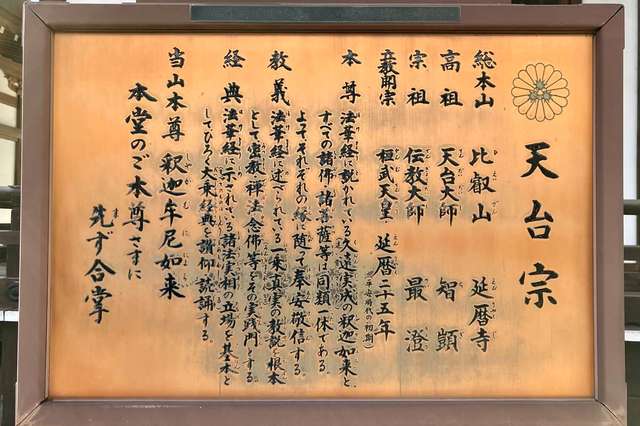 天台宗
総本山 比叡山 延暦寺
高祖 天台大師 智顗
宗祖 伝教大師 最澄
立教開宗 桓武天皇 延暦二十五年(平安時代の初期)
本尊 法華経に説かれている久遠実成の釈迦如来と、
すべての諸佛・諸菩薩等は同類一体である。
よってそれぞれの縁に随って奉安敬信する。
教義 法華経に述べられている一乗真実の教説を根本
として密教・禅法・念佛等をその実践門とする。
経典 法華経に示されている諸法実相の立場を基本と
してひろく大乗経典を讃仰読誦する。
当山本尊 釈迦牟尼如来
本堂のご本尊さまに
先ず合掌